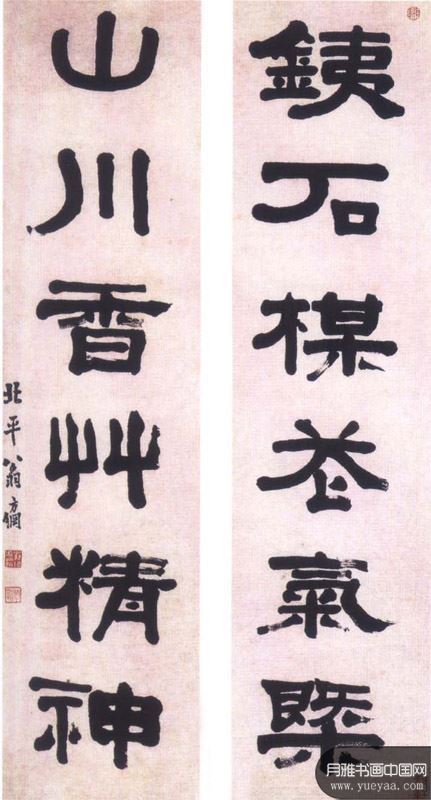 銕石楳花氣槩
山川香艸精神
北平翁方綱
月雅书画中国网
www.yueyaa.com